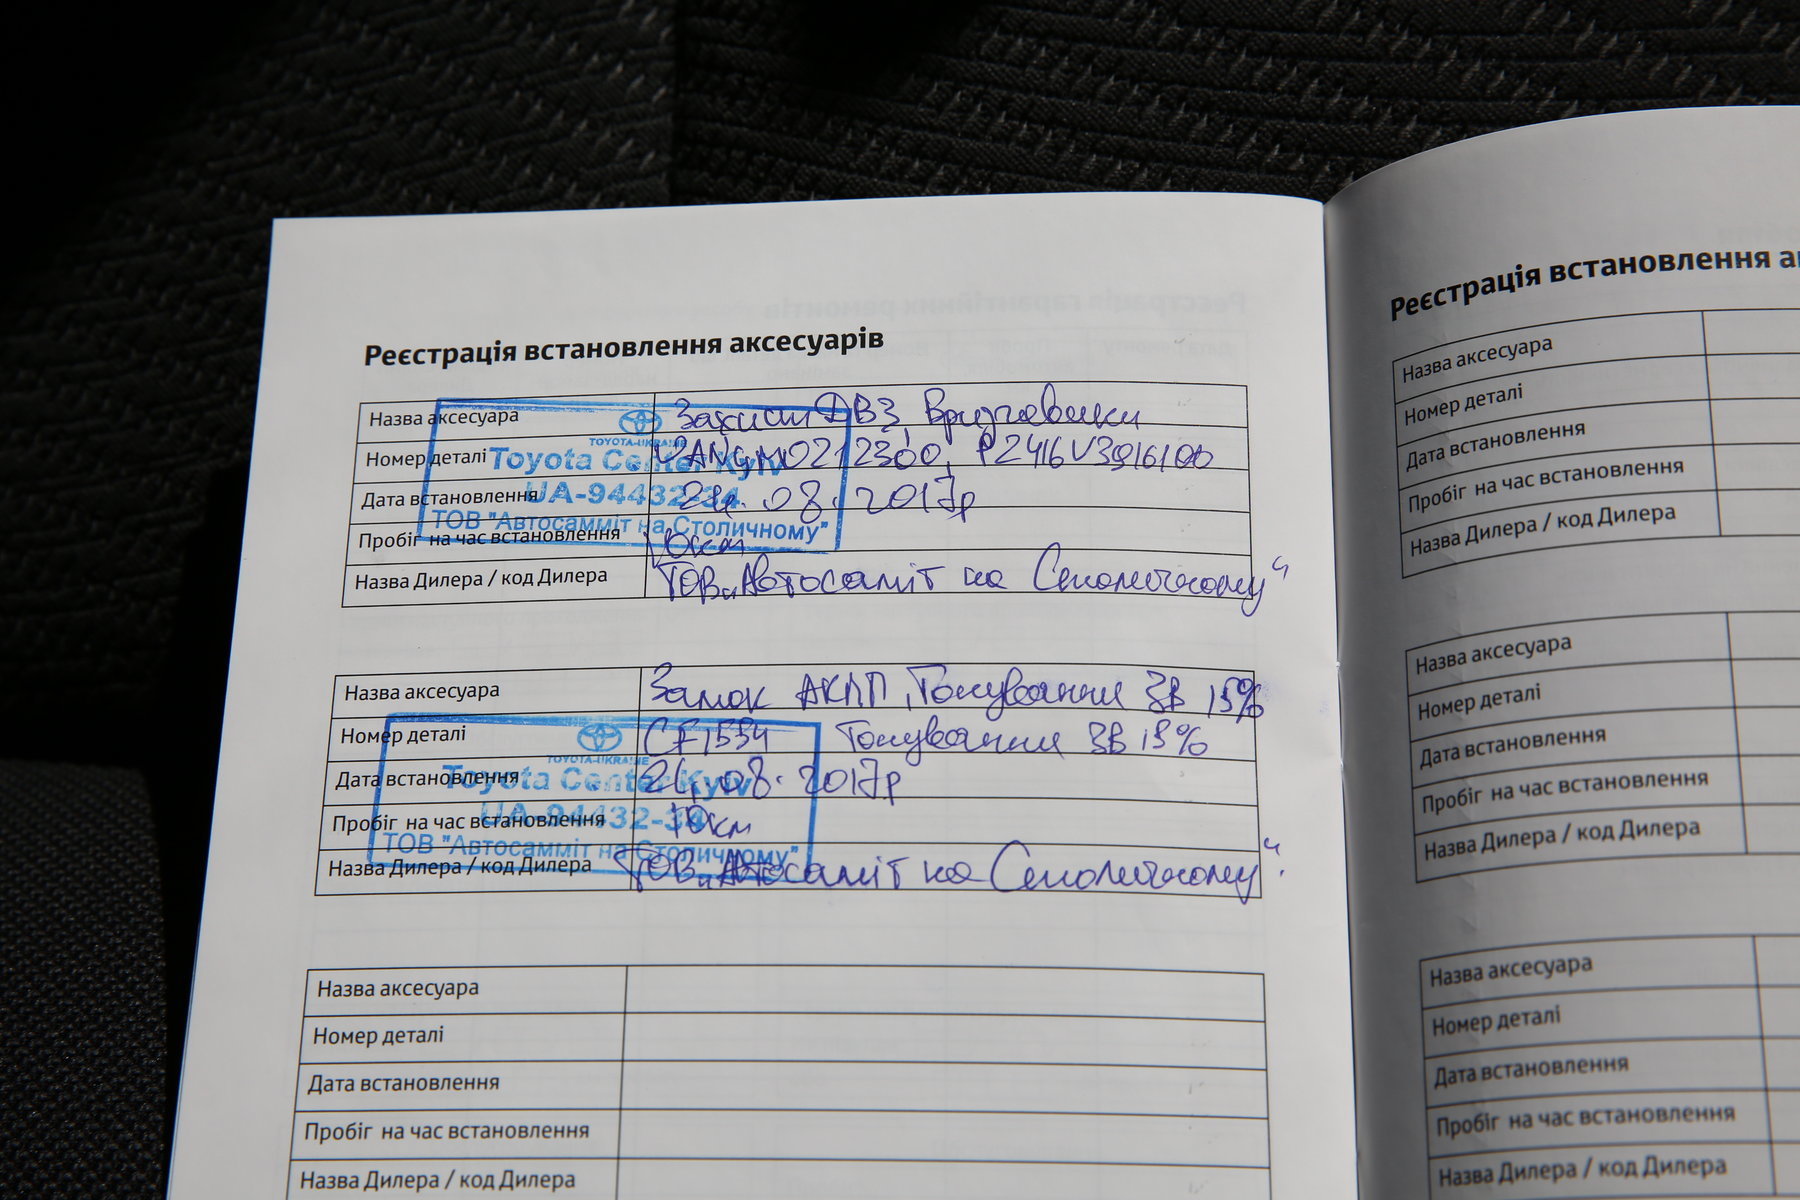 Реєстрація встановлення аксесуарів
Назва аксесуара Захист ДВЗ, Бризговики
Номер деталі PZ416V3916100
Дата встановлення 24.08.2017р
Пробіг на час встановлення 10км
Назва Дилера / код Дилера ТОВ „Автосаміт на Столичному“
TOYOTA-UKRAINE
Toyota Center Kyiv
UA-94432-34
ТОВ "Автосамміт на Столичному"
Назва аксесуара Замок АКПП, Тонування ЗВ 15%
Номер деталі CF1534 Тонування ЗВ 15%
Дата встановлення 24.08.2017р
Пробіг на час встановлення 10км
Назва Дилера / код Дилера ТОВ „Автосаміт на Столичному“.
TOYOTA-UKRAINE
Toyota Center Kyiv
UA-94432-34
ТОВ "Автосамміт на Столичному"
Назва аксесуара
Номер деталі
Дата встановлення
Пробіг на час встановлення
Назва Дилера / код Дилера
Реєстрація встановлення
Назва аксесуара
Номер деталі
Дата встановлення
Пробіг на час встановлення
Назва Дилера / код Дилера
Назва аксесуара
Номер деталі
Дата встановлення
Пробіг на час встановлення
Назва Дилера / код Дилера
Назва аксесуара
Номер деталі
Дата встановлення
Пробіг на час встановлення
Назва Дилера / код Дилера